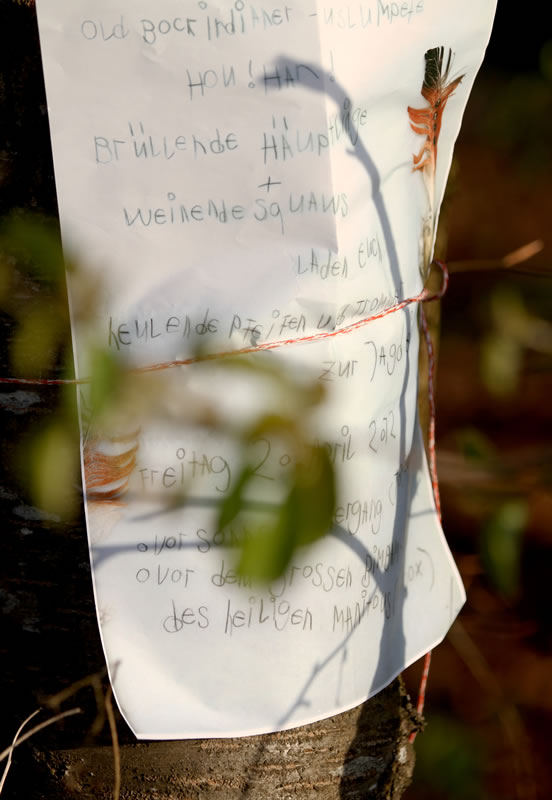 OLD BOCKINDIANER - USLUMPETE
HOU! HAU!
BRÜLLENDE HÄUPTLINGE
+
WEINENDE SQUAWS
LADEN EUCH
HEULENDE PFEIFEN UND
ZUR JAGD
FREITAG 20 APRIL 2012
OVOR
OVOR DEM GROSSEN
DES HEILIGEN MANITOUS